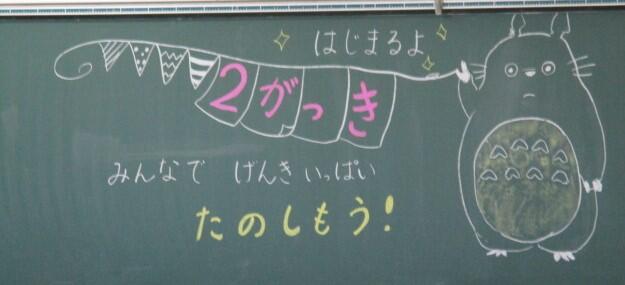 はじまるよ
2がっき
みんなで げんきいっぱい
たのしもう!